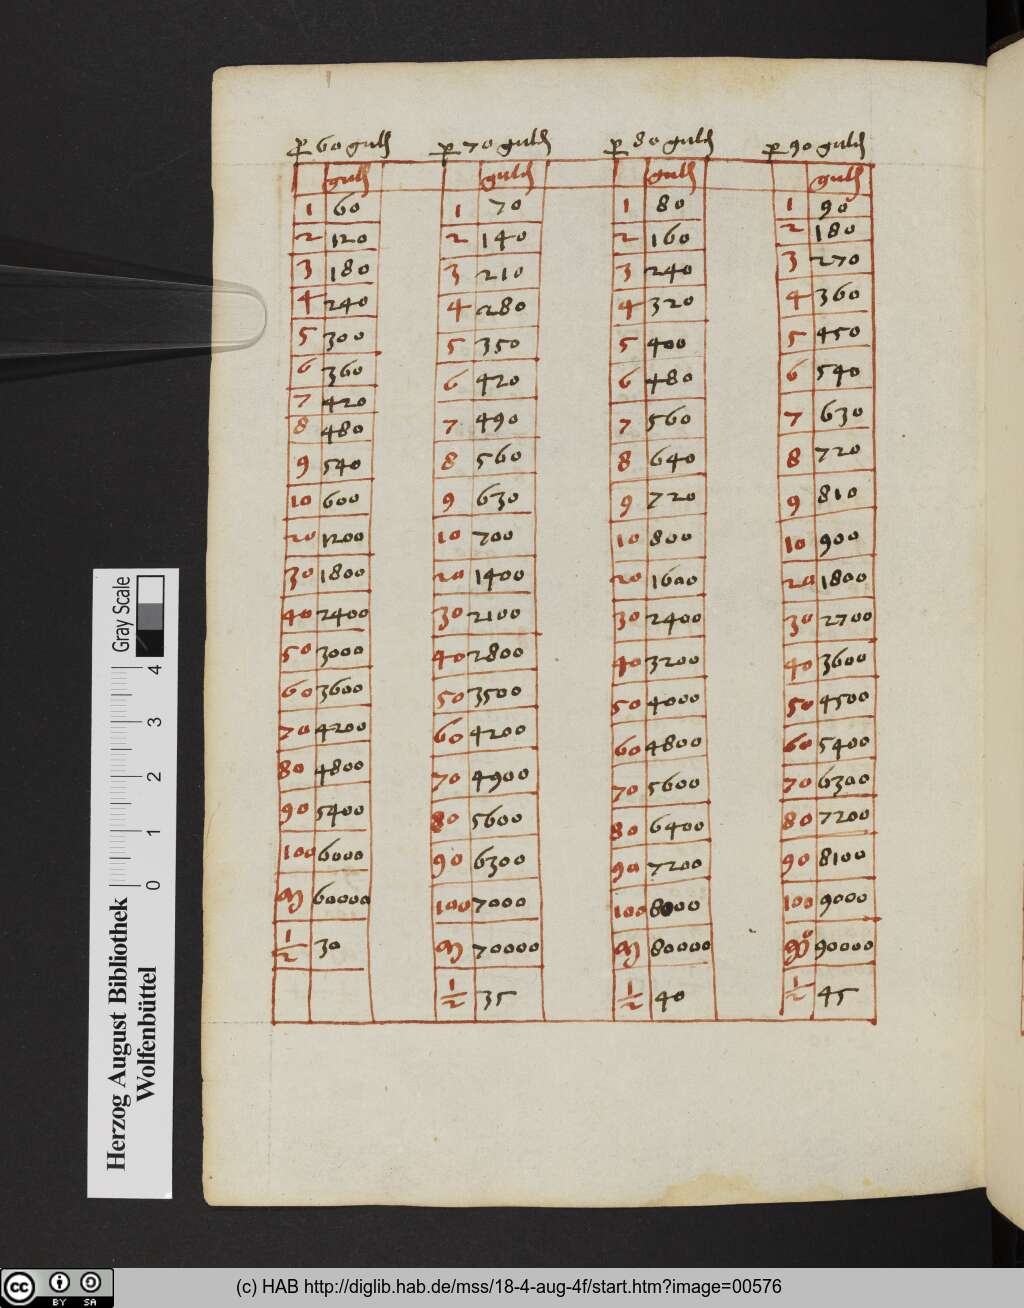 p 60 guld p 70 guld p 80 guld p 90 guld
guld guld guld guld
1 60 1 70 1 80 1 90
2 120 2 140 2 160 2 180
3 180 3 210 3 240 3 270
4 240 4 280 4 320 4 360
5 300 5 350 5 400 5 450
6 360 6 420 6 480 6 540
7 420 7 490 7 560 7 630
8 480 8 560 8 640 8 720
9 540 9 630 9 720 9 810
10 600 10 700 10 800 10 900
20 1200 20 1400 20 1600 20 1800
30 1800 30 2100 30 2400 30 2700
40 2400 40 2800 40 3200 40 3600
50 3000 50 3500 50 4000 50 4500
60 3600 60 4200 60 4800 60 5400
70 4200 70 4900 70 5600 70 6300
80 4800 80 5600 80 6400 80 7200
90 5400 90 6300 90 7200 90 8100
100 6000 100 7000 100 8000 100 9000
M 60000 M 70000 M 80000 M 90000
1/2 30 1/2 35 1/2 40 1/2 45
Gray Scale
4 3 2 1 0
Herzog August Bibliothek
Wolfenbüttel
cc BY SA
(c) HAB http://diglib.hab.de/mss/18-4-aug-4f/start.htm?image=00576